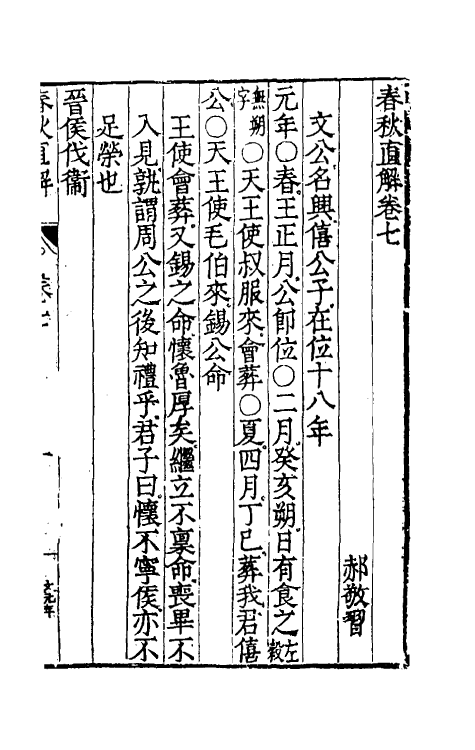 春秋直解卷七
郝敬習
文公名興僖公子在位十八年
元年○春王正月公卽位○二月癸亥朔日有食之左穀
無朔字○天王使叔服來會葬○夏四月丁巳葬我君僖
公○天王使毛伯來錫公命
王使會葬又錫之命懷魯厚矣繼立不稟命喪畢不
入見孰謂周公之後知禮乎君子曰懷不寧侯亦不
足榮也
晉侯伐衞
春秋直解
卷七
一
文元年